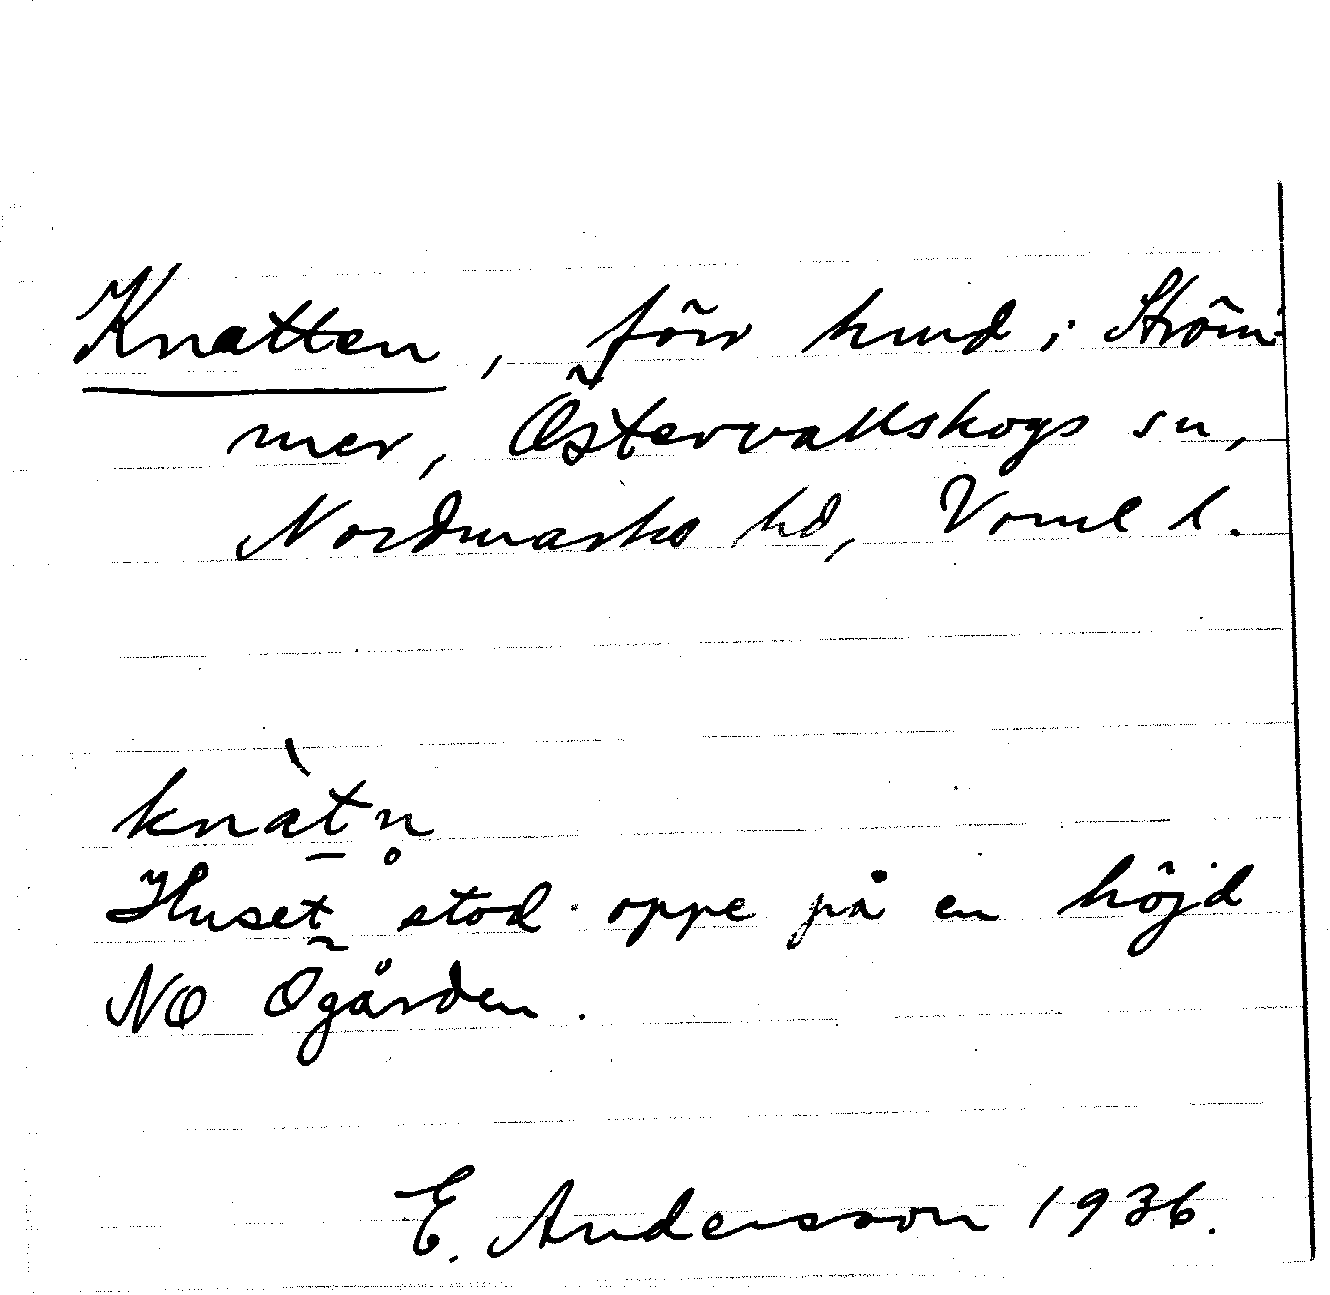 Knatten, förr hmd i Ström-
mer, Östervallskogs sn,
Nordmarks hd, Vrml l.
knàt̠n̥
Huset stod oppe på en höjd
NO Ögården.
E. Andersson 1936.